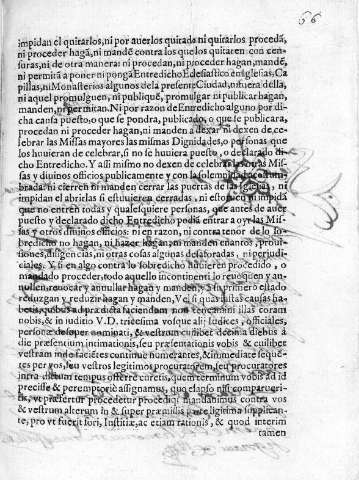 66
impidan el quitarlos, ni por auerlos quitado ni quitarlos procedã,
ni proceder hagã, ni mandẽ contra los que los quitaren con cen-
suras, ni de otra manera: ni procedan, ni proceder hagan, mandẽ,
ni permitã a poner ni pongã Entredicho Eclesiastico en Iglesias, Ca
pillas, ni Monasterios algunos de la presente Ciudad, ni fuera della,
ni aquel promulguen, ni publiquẽ, promulgar ni publicar hagan,
manden, ni permitan. Ni por razon de Entredicho alguno por di-
cha causa puesto, o que se pondra, publicado, o que se publicara,
procedan ni proceder hagan, ni manden a dexar ni dexen de ce-
lebrar las Missas mayores las mismas Dignidades, o personas que
las huuieran de celebrar, si no se huuiera puesto, o declarado di-
cho Entredicho. Y assi mismo no dexen de celebrar las Mis-
sas y diuinos officios publicamente y con la solemnidad
ni cierren ni manden cerrar las puertas de las Iglesias, ni
impidan el abrirlas si estuuieren cerradas, ni impidã
que no entren todas y qualesquiere personas, que antes de auer
puesto y declarado dicho Entredicho podiã entrar a oyr las Mis-
sas y otros diuinos officios: ni en razon, ni contra tenor de lo so-
bredicho no hagan, ni hazer hagan, ni manden enantos, proui-
siones, diligencias, ni otras cosas algunas desaforadas, ni perjudi-
ciales. Y si en algo contra lo sobredicho huuieren procedido, o
mandado proceder, todo aquello incontinenti lo reuoquen y an-
nullen, reuocar y annullar hagan y manden, y a su primero estado
reduzgan y reduzir hagan y manden, Vel si quas iustas causas ha-
betis, quibus ad prædicta faciendum non teneamini illas coram
nobis, & in iudicio V. D. tricesima vosque alij Iudices, officiales,
personæ desuper nominati, & vestrum cuilibet decima diebus à
die præsentium intimationis, seu præsentationis vobis & cuilibet
vestrum inde faciẽtes continue numerantes, & immediatè sequẽ-
tes per vos, seu vestros legitimos procuratorem, seu procuratores
intra dictum tempus offerre curetis, quem terminum vobis ad id
præcisè & peremptoriè assignamus, quo elapso nisi comparueri-
tis, vt præfertur procedetur procedique mandabimus contra vos
& vestrum alterum in & super præmissis parte legitima supplicante,
pro vt fuerit fori, Iustitiæ, ac etiam rationis, & quod interim
tamen